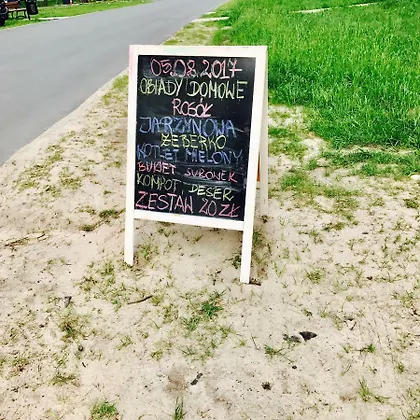 05.08.2017
OBIADY DOMOWE
ROSÓŁ
JARZYNOWA
ŻEBERKO
KOTLET MIELONY
BUFET SURÓWEK
KOMPOT, DESER
ZESTAW 20 ZŁ